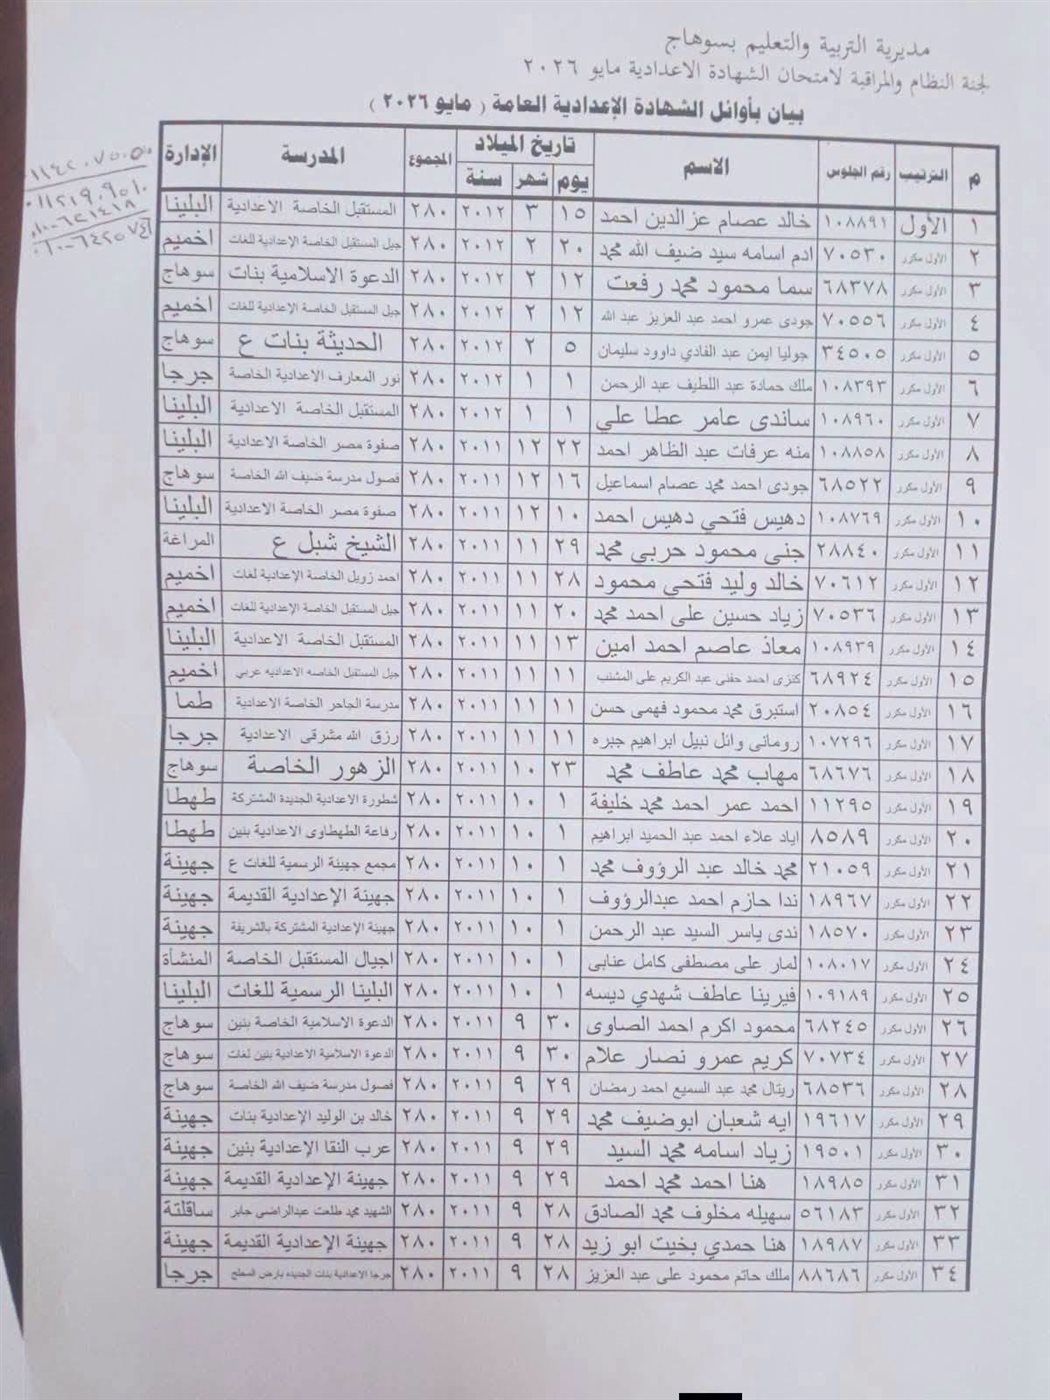 مديرية التربية والتعليم بسوهاج
لجنة النظام والمراقبة لامتحان الشهادة الاعدادية مايو ٢٠٢٦
بيان بأوائل الشهادة الإعدادية العامة ( مايو ٢٠٢٦ )
م الترتيب رقم الجلوس الاسم تاريخ الميلاد المجموع المدرسة الإدارة
يوم شهر سنة
١ الأول ١٠٨٨٩١ خالد عصام عز الدين احمد ١٥ ٣ ٢٠١٢ ٢٨٠ المستقبل الخاصة الاعدادية البلينا
٢ الأول مكرر ٧٠٥٣٠ ادم اسامه سيد ضيف الله محمد ٢٠ ٢ ٢٠١٢ ٢٨٠ جيل المستقبل الخاصة الإعدادية للغات اخميم
٣ الأول مكرر ٦٨٣٧٨ سما محمود محمد رفعت ١٢ ٢ ٢٠١٢ ٢٨٠ الدعوة الاسلامية بنات سوهاج
٤ الأول مكرر ٧٠٥٥٦ جودى عمرو احمد عبد العزيز عبد الله ١٢ ٢ ٢٠١٢ ٢٨٠ جيل المستقبل الخاصة الإعدادية للغات اخميم
٥ الأول مكرر ٣٤٥٠٥ جوليا ايمن عبد الفادي داوود سليمان ٥ ٢ ٢٠١٢ ٢٨٠ الحديثة بنات ع سوهاج
٦ الأول مكرر ١٠٨٣٩٣ ملك حمادة عبد اللطيف عبد الرحمن ١ ١ ٢٠١٢ ٢٨٠ نور المعارف الاعدادية الخاصة جرجا
٧ الأول مكرر ١٠٨٩٦٠ ساندى عامر عطا علي ١ ١ ٢٠١٢ ٢٨٠ المستقبل الخاصة الاعدادية البلينا
٨ الأول مكرر ١٠٨٨٥٨ منه عرفات عبد الظاهر احمد ٢٢ ١٢ ٢٠١١ ٢٨٠ صفوة مصر الخاصة الاعدادية البلينا
٩ الأول مكرر ٦٨٥٢٢ جودى احمد محمد عصام اسماعيل ١٦ ١٢ ٢٠١١ ٢٨٠ فصول مدرسة ضيف الله الخاصة سوهاج
١٠ الأول مكرر ١٠٨٧٦٩ دهيس فتحي دهيس احمد ١٠ ١٢ ٢٠١١ ٢٨٠ صفوة مصر الخاصة الاعدادية البلينا
١١ الأول مكرر ٢٨٨٤٠ جنى محمود حربي محمد ٢٩ ١١ ٢٠١١ ٢٨٠ الشيخ شبل ع المراغة
١٢ الأول مكرر ٧٠٦١٢ خالد وليد فتحي محمود ٢٨ ١١ ٢٠١١ ٢٨٠ احمد زويل الخاصة الإعدادية لغات اخميم
١٣ الأول مكرر ٧٠٥٣٦ زياد حسين على احمد محمد ٢٠ ١١ ٢٠١١ ٢٨٠ جيل المستقبل الخاصة الإعدادية للغات اخميم
١٤ الأول مكرر ١٠٨٩٣٩ معاذ عاصم احمد امين ١٣ ١١ ٢٠١١ ٢٨٠ المستقبل الخاصة الاعدادية البلينا
١٥ الأول مكرر ٦٨٩٢٤ كنزى احمد حفنى عبد الكريم على المشنب ١١ ١١ ٢٠١١ ٢٨٠ جيل المستقبل الخاصه الاعداديه عربي اخميم
١٦ الأول مكرر ٢٠٨٥٤ استبرق محمد محمود فهمى حسن ١١ ١١ ٢٠١١ ٢٨٠ مدرسة الجاحر الخاصة الاعدادية طما
١٧ الأول مكرر ١٠٧٢٩٦ رومانى وائل نبيل ابراهيم جبره ١١ ١١ ٢٠١١ ٢٨٠ رزق الله مشرقى الاعدادية جرجا
١٨ الأول مكرر ٦٨٦٧٦ مهاب محمد عاطف محمد ٢٣ ١٠ ٢٠١١ ٢٨٠ الزهور الخاصة سوهاج
١٩ الأول مكرر ١١٢٩٥ احمد عمر احمد محمد خليفة ١ ١٠ ٢٠١١ ٢٨٠ شطورة الاعدادية الجديدة المشتركة طهطا
٢٠ الأول مكرر ٨٥٨٩ اياد علاء احمد عبد الحميد ابراهيم ١ ١٠ ٢٠١١ ٢٨٠ رفاعة الطهطاوى الاعدادية بنين طهطا
٢١ الأول مكرر ٢١٠٥٩ محمد خالد عبد الرؤوف محمد ١ ١٠ ٢٠١١ ٢٨٠ مجمع جهينة الرسمية للغات ع جهينة
٢٢ الأول مكرر ١٨٩٦٧ ندا حازم احمد عبدالرؤوف ١ ١٠ ٢٠١١ ٢٨٠ جهينة الإعدادية القديمة جهينة
٢٣ الأول مكرر ١٨٥٧٠ ندى ياسر السيد عبد الرحمن ١ ١٠ ٢٠١١ ٢٨٠ جهينة الإعدادية المشتركة بالشريفة جهينة
٢٤ الأول مكرر ١٠٨٠١٧ لمار على مصطفى كامل عنابى ١ ١٠ ٢٠١١ ٢٨٠ اجيال المستقبل الخاصة المنشأة
٢٥ الأول مكرر ١٠٩١٨٩ فيرينا عاطف شهدي ديسه ١ ١٠ ٢٠١١ ٢٨٠ البلينا الرسمية للغات البلينا
٢٦ الأول مكرر ٦٨٢٤٥ محمود اكرم احمد الصاوى ٣٠ ٩ ٢٠١١ ٢٨٠ الدعوة الاسلامية الخاصة بنين سوهاج
٢٧ الأول مكرر ٧٠٧٣٤ كريم عمرو نصار علام ٣٠ ٩ ٢٠١١ ٢٨٠ الدعوة الاسلامية الاعدادية بنين لغات سوهاج
٢٨ الأول مكرر ٦٨٥٣٦ ريتال محمد عبد السميع احمد رمضان ٢٩ ٩ ٢٠١١ ٢٨٠ فصول مدرسة ضيف الله الخاصة سوهاج
٢٩ الأول مكرر ١٩٦١٧ ايه شعبان ابوضيف محمد ٢٩ ٩ ٢٠١١ ٢٨٠ خالد بن الوليد الإعدادية بنات جهينة
٣٠ الأول مكرر ١٩٥٠١ زياد اسامه محمد السيد ٢٩ ٩ ٢٠١١ ٢٨٠ عرب النقا الإعدادية بنين جهينة
٣١ الأول مكرر ١٨٩٨٥ هنا احمد محمد احمد ٢٩ ٩ ٢٠١١ ٢٨٠ جهينة الإعدادية القديمة جهينة
٣٢ الأول مكرر ٥٦١٨٣ سهيله مخلوف محمد الصادق ٢٨ ٩ ٢٠١١ ٢٨٠ الشهيد محمد طلعت عبدالراضى جابر ساقلتة
٣٣ الأول مكرر ١٨٩٨٧ هنا حمدي بخيت ابو زيد ٢٨ ٩ ٢٠١١ ٢٨٠ جهينة الإعدادية القديمة جهينة
٣٤ الأول مكرر ٨٨٦٨٦ ملك حاتم محمود على عبد العزيز ٢٨ ٩ ٢٠١١ ٢٨٠ جرجا الاعدادية بنات الجديده بارض المحلج جرجا